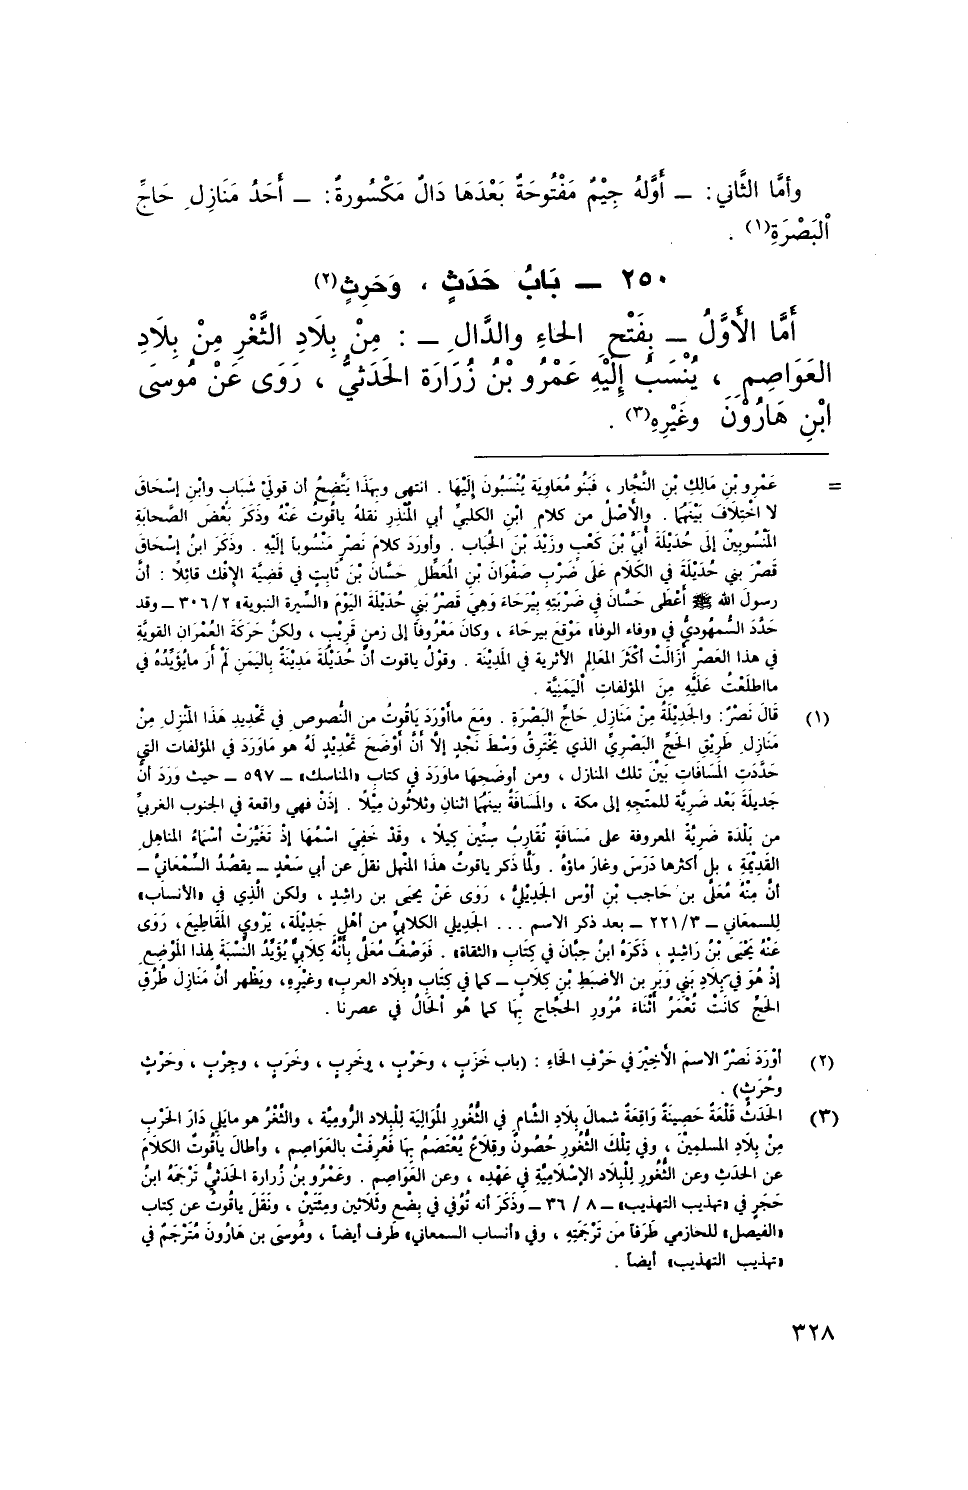 وأمَّا الثَّاني: ــ أَوَّلهُ جِيْمٌ مَفْتُوحَةٌ بَعْدَهَا دَالٌ مَكْسُورةٌ: ــ أَحَدُ مَنَازِلِ حَاجِّ
اَلبَصْرَةِ(١) .
٢٥٠ ــ بَابُ حَدَثٍ ، وَحَرِثٍ(٢)
أَمَّا الأَوَّلُ ــ بِفَتْحِ الحاءِ والدَّالِ ــ : مِنْ بِلَادِ الثَّغْرِ مِنْ بِلَادِ
العَوَاصِمِ ، يُنْسَبُ إِلَيْهِ عَمْرُو بْنُ زُرَارَة الحَدَثيُّ ، رَوَى عَنْ مُوسَى
ابْنِ هَارُوْنَ وغَيْرِهِ(٣) .
= عَمْرِو بْنِ مَالِكِ بْنِ النَّجَّار ، فَبَنُو مُعَاوِيَة يُنْسَبُونَ إِلَيْهَا . انتهى وبهَذَا يَتَّضِحُ أن قوليْ شَبَابٍ وابْنِ إِسْحَاقَ
لا اخْتِلَافَ بَيْنَهُمَا . والأَصْلُ من كلام ابْنِ الكلبيِّ أبي المُنْذِرِ نَقلهُ ياقُوتُ عَنْهُ وذَكَرَ بَعْضَ الصَّحابَةِ
المَنْسُوبِيْنَ إلى حُدَيْلَةَ أُبَيِّ بْنَ كَعْبٍ وزَيْدَ بْنَ الحُبَاب . وأورَدَ كلامَ نَصْرٍ مَنْسُوباً إلَيْهِ . وذَكَرَ ابنُ إسْحَاقَ
قَصْرَ بني حُدَيْلَةَ في الكَلَامِ عَلَى ضَرْبِ صَفْوَانَ بْنِ المُعَطِّلِ حَسَّانَ بْنَ ثَابِتٍ في قَضِيَّةِ الإِفْكِ قائلًا : أنَّ
رسولَ الله ﷺ أَعْطَى حَسَّانَ في ضَرْبَتِهِ بِيْرَحَاءَ وَهِيَ قَصْرُ بَني حُدَيْلَةَ اليَوْمَ «السِّيرة النبوية» ٣٠٦/٢ ــ وقد
حَدَّدَ السُّمهُوديُّ في «وفاء الوفا» مَوْقِعَ بيرحاءَ ، وكانَ مَعْرُوفاً إلى زمنٍ قَرِيْبٍ ، ولكنَّ حَرَكَةَ العُمْرانِ القَويَّةِ
في هذا العَصْرِ أَزَالَتْ أكْثَرَ المَعَالِمِ الأثرية في المَدِيْنَة . وقوْلُ ياقوت أنَّ حُدَيْلَةَ مَدِيْنَةٌ بِاليَمنِ لَمْ أرَ مايُؤَيِّدُهُ في
مااطلَعْتُ عَلَيْهِ مِنَ المؤلفاتِ اليَمَنِيَّة .
(١) قَالَ نَصْرٌ: والجَدِيْلَةُ مِنْ مَنَازِلِ حَاجِّ البَصْرَةِ . ومَعَ ماأَوْرَدَ يَاقُوتُ من النُّصوصِ في تَحْدِيدِ هَذَا المَنْزِلِ مِنْ
مَنَازِلِ طَرِيْقِ الحَجِّ البَصْرِيِّ الذي يَخْتَرِقُ وَسْطَ نَجْدٍ إلاَّ أنَّ أَوْضَحَ تَحْدِيْدٍ لَهُ هو مَاوَرَدَ في المؤلفات التي
حَدَّدَتِ المَسَافَاتِ بَيْنَ تلك المنازل ، ومن أوضَحِها ماوَرَدَ في كتابِ «المناسك» ــ ٥٩٧ ــ حيث وَرَدَ أنَّ
جَدِيلَةَ بَعْدَ ضَرِيَّة للمتَّجِهِ إلى مكة ، والمَسَافَةُ بينهُمَا اثنانِ وثلاثون مِيْلًا . إذَنْ فهي واقعة في الجنوب الغربيِّ
من بَلْدَة ضَريَّةْ المعروفة على مَسَافَةِ تُقَارِبُ سِتِّينَ كِيلًا ، وقَدْ خَفِيَ اسْمُهَا إذْ تَغَيَّرَتْ أسْمَاءُ المَناهِلِ
القَدِيْمَةِ ، بل أكثرها دَرَسَ وغَارَ ماؤهُ . ولمَّا ذكر ياقوتُ هذا المنْهَلَ نقلَ عن أبي سَعْدٍ ــ يقصُدُ السَّمْعَانيَّ ــ
أنَّ مِنْهُ مُعَلَّى بن حَاجب بْنِ أوْسَ الجَدِيْليَّ ، رَوَى عَنْ يحيَى بن راشد ، ولكن الَّذِي في «الأنساب»
لِلسمعاني ــ ٢٢١/٣ ــ بعد ذكر الاسم ... الجَديلي الكلابيِّ من أَهْلِ جَدِيْلَة، يَرْوِي المَقَاطِيعَ، رَوَى
عَنْهُ يَحْيَى بْنُ رَاشِدٍ ، ذَكَرَهُ ابنُ حِبَّانَ في كِتَابِ «الثقاة» . فَوَصْفُ مُعَلَّى بِأنَّهُ كِلَابيٌّ يُؤَيِّدُ النَّسْبَةَ لِهذا المَوْضِعِ
إذْ هُوَ في بِلَادِ بَنِي وَبَرِ بن الأضبَطِ بْنِ كِلَابٍ ــ كما في كِتَابِ «بِلَاد العرب» وغَيْرِهِ، ويَظْهر أنَّ مَنَازِلَ طُرُقِ
الحَجِّ كانَتْ تُعْمَرُ أَثْنَاءَ مُرُورِ الحُجَّاج بِهَا كما هُو اَلحَالُ في عصرنا .
(٢) أَوْرَدَ نَصْرٌ الاسمَ الأَخِيْرَ في حَرْفِ الخاءِ : (باب خَرِبٍ ، وحَرْبٍ ، وخَرِبٍ ، وخَرَبٍ ، وجِرْبٍ ، وحَرْثٍ
وحُرَثٍ) .
(٣) الحَدَثُ قَلْعَةٌ حَصِينَةٌ وَاقِعَةٌ شمالَ بِلَادِ الشَّامِ في الثُّغُورِ المُوَالِيَةِ لِلْبِلاد الرُّومِيَّةِ ، والثَّغْرُ هو مايَلي دَارَ الحَرْبِ
مِنْ بِلَادِ المسلمِيْنَ ، وفي تِلْكَ الثُّغُورِ حُصُونٌ وقِلَاعٌ يُعْتَصَمُ بِهَا فَعُرِفَتْ بالعَوَاصِم ، وأطالَ ياقُوتُ الكلَامَ
عن الحَدَثِ وعن الثُّغُورِ لِلْبِلَادِ الإسْلَامِيَّةِ في عَهْدِه ، وعن العَوَاصِمِ . وعَمْرُو بنُ زُرارة الحَدَثيُّ تَرْجَمَهُ ابنُ
حَجَرٍ في «تهذيب التهذيب» ــ ٨ / ٣٦ ــ وذَكَرَ أنه تُوُفي في بِضْعٍ وثَلَاثينَ ومِئَتَيْنِ ، ونَقَلَ ياقُوتُ عن كِتابِ
«الفيصل» للحازمي طَرَفاً من تَرْجَمَتِهِ ، وفي «أنساب السمعاني» طَرف أيضاً ، ومُوسَى بن هَارُونَ مُتَرْجَمٌ في
«تهذيب التهذيب» أيضاً .
٣٢٨